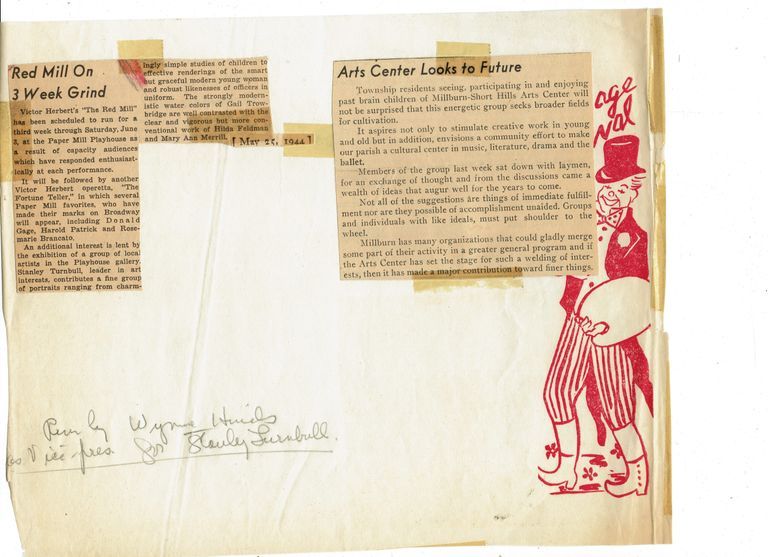 Red Mill On
3 Week Grind
Victor Herbert's "The Red Mill"
has been scheduled to run for a
third week through Saturday, June
3, at the Paper Mill Playhouse as
a result of capacity audiences
which have responded enthusiast-
ically at each performance.
It will be followed by another
Victor Herbert operetta, "The
Fortune Teller," in which several
Paper Mill favorites, who have
made their marks on Broadway
will appear, including Donald
Gage, Harold Patrick and Rose-
marie Brancato.
An additional interest is lent by
the exhibition of a group of local
artists in the Playhouse gallery.
Stanley Turnbull, leader in art
interests, contributes a fine group
of portraits ranging from charm-
ingly simple studies of children to
effective renderings of the smart
but graceful modern young woman
and robust likenesses of officers in
uniform. The strongly modern-
istic water colors of Gail Trow-
bridge are well contrasted with the
clear and vigorous but more con-
ventional work of Hilda Feldman
and Mary Ann Merrill.
[May 25, 1944]
Arts Center Looks to Future
Township residents seeing, participating in and enjoying
past brain children of Millburn-Short Hills Arts Center will
not be surprised that this energetic group seeks broader fields
for cultivation.
It aspires not only to stimulate creative work in young
and old but in addition, envisions a community effort to make
our parish a cultural center in music, literature, drama and the
ballet.
Members of the group last week sat down with laymen,
for an exchange of thought and from the discussions came a
wealth of ideas that augur well for the years to come.
Not all of the suggestions are things of immediate fulfill-
ment nor are they possible of accomplishment unaided. Groups
and individuals with like ideals, must put shoulder to the
wheel.
Millburn has many organizations that could gladly merge
some part of their activity in a greater general program and if
the Arts Center has set the stage for such a welding of inter-
ests, then it has made a major contribution toward finer things.
by Wynne Hinds
as Vice-pres. for Stanley Turnbull.